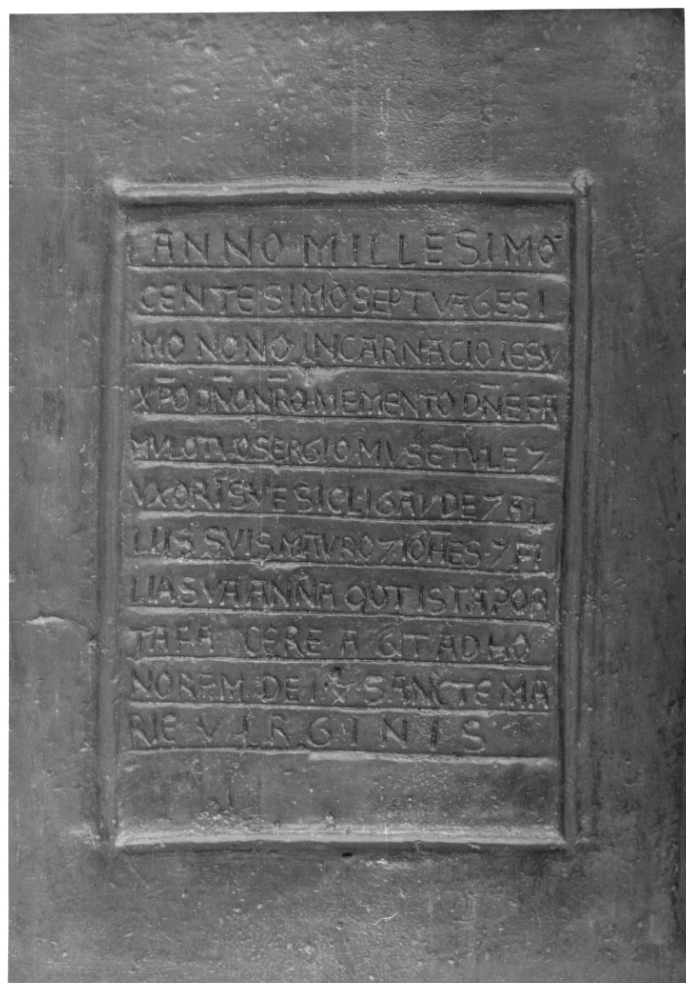 ANNO MILLESIMO
CENTESIMO SEPTVAGESI
MO NONO INCARNACIO IESV
XP̄O DN̄O NR̄O MEMENTO DN̄E FA
MVLO TVO SERGIO MVSETVLE 7
VXORI SVE SICLIGAVDE 7
LIIS SVIS MAVRO 7 IOHES 7 FI
LIA SVA ANNA QVT ISTA POR
TA FA CERE AGIT AD HO
NOREM DEI 7 SANCTE MA
RIE VIRGINIS